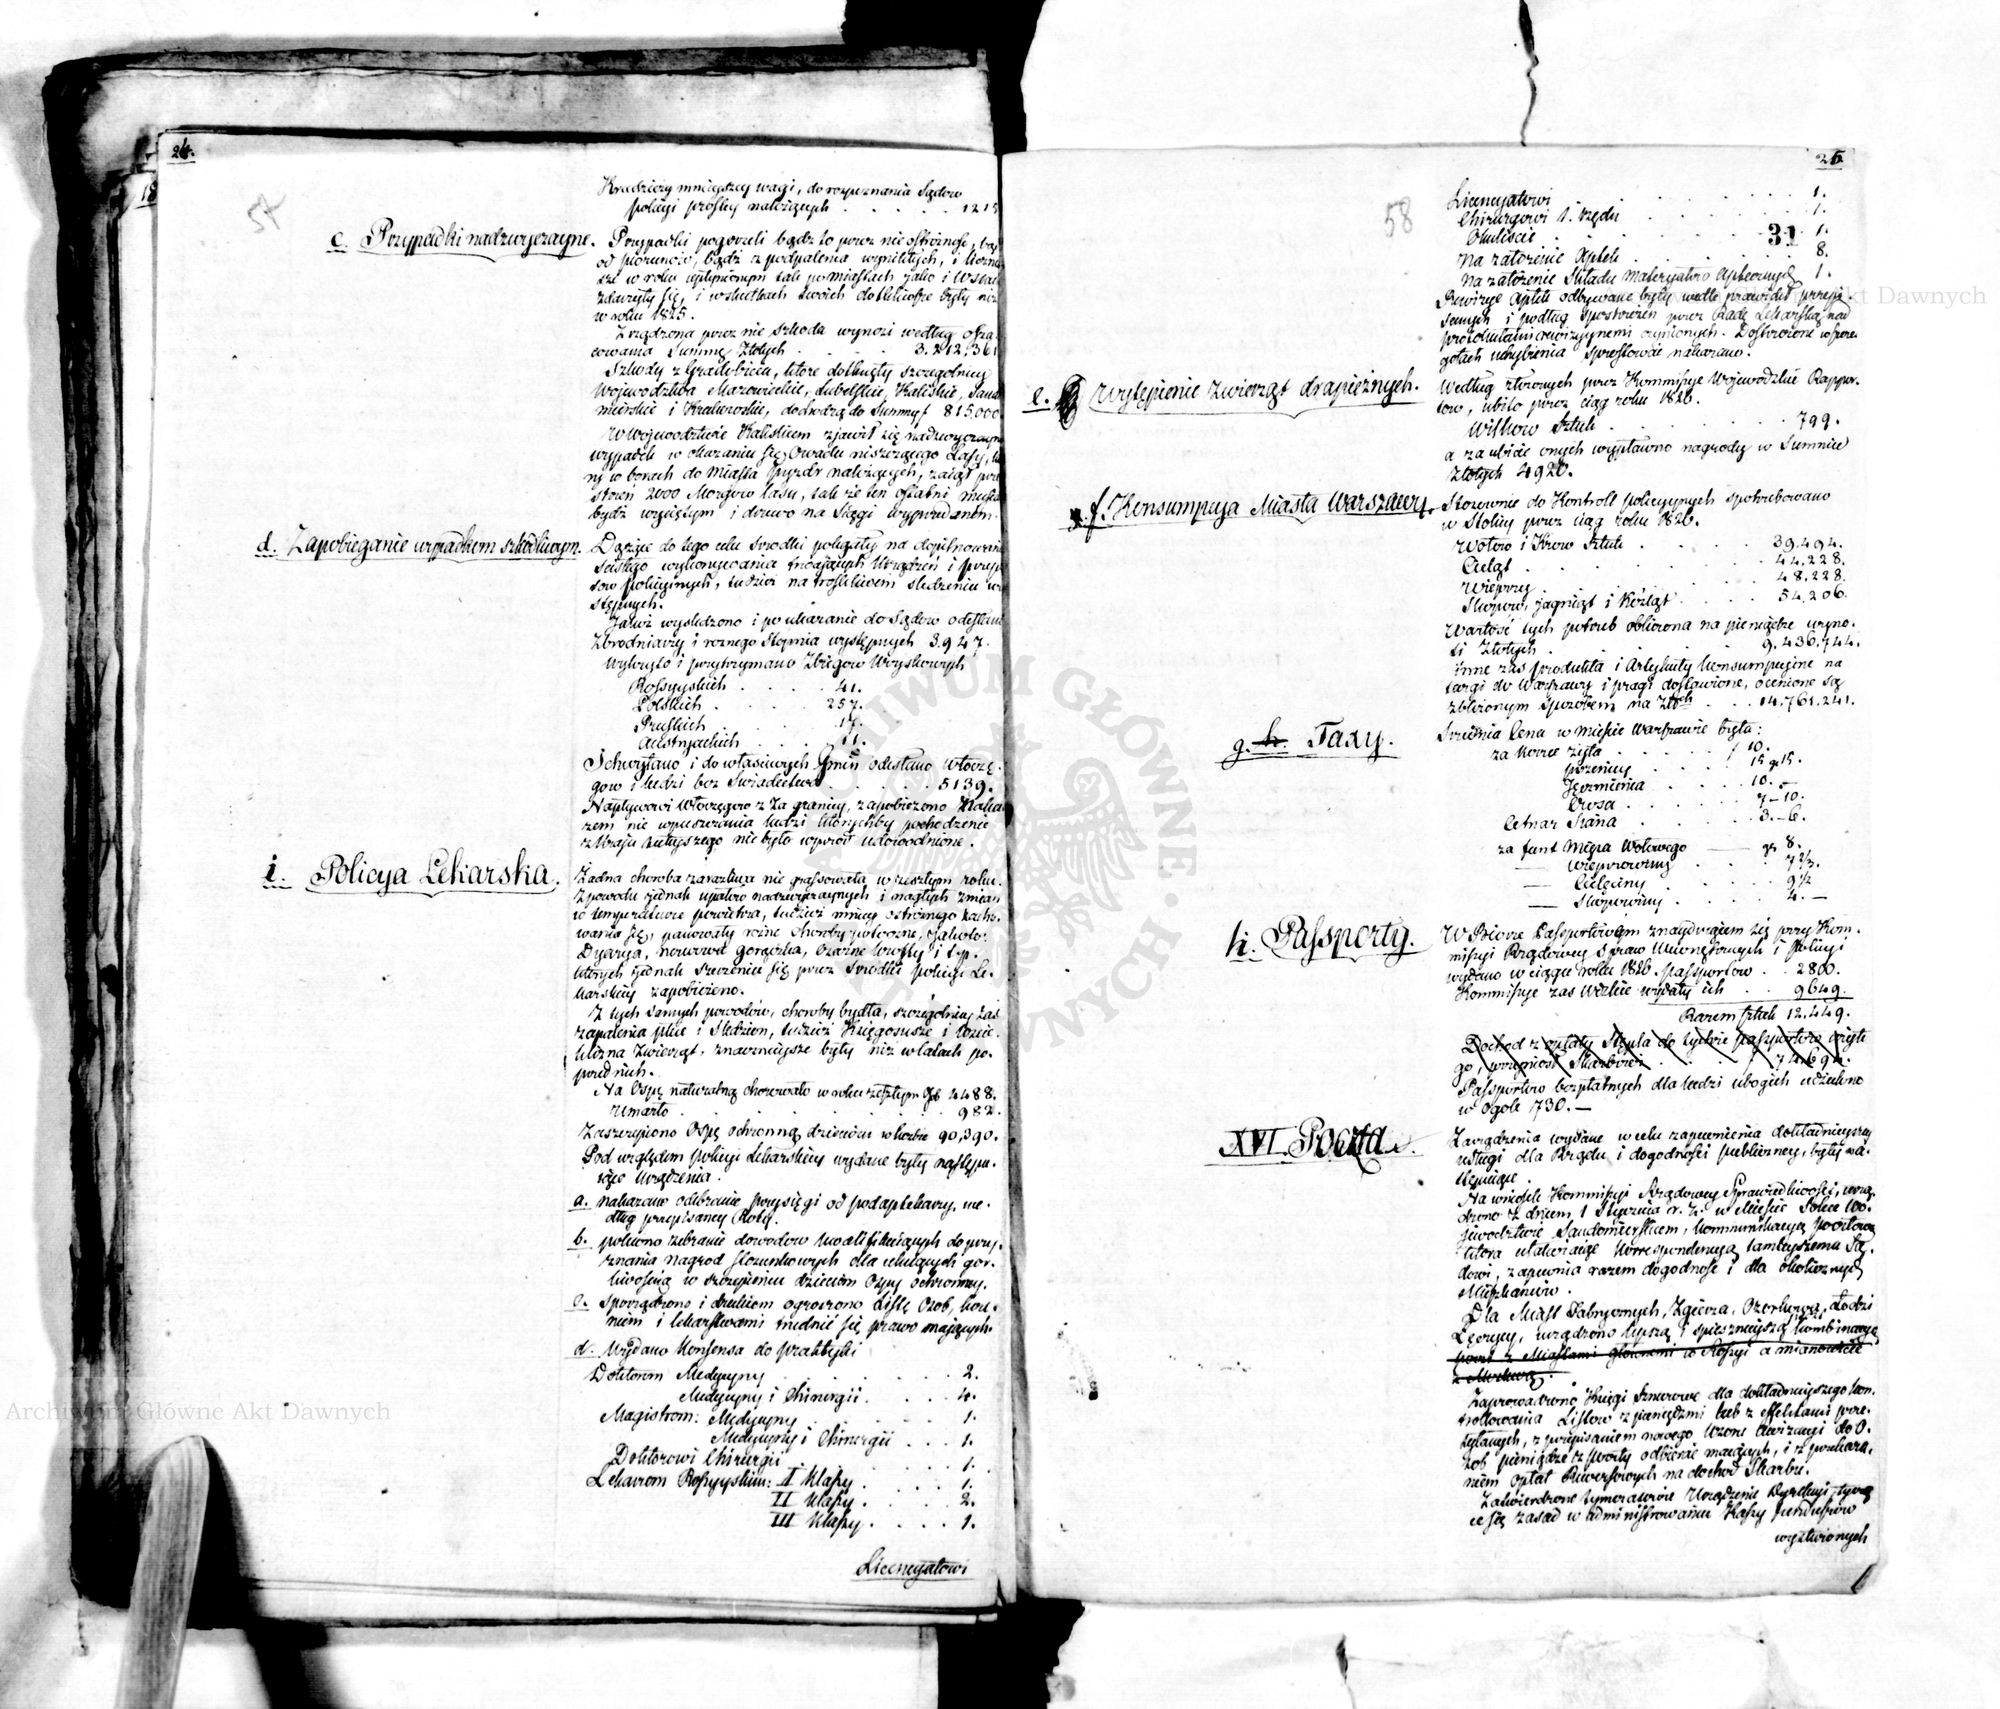 24.
57
Kradzieży mnieyszey wagi, do rozpoznania Sądow
policyi prostey należących . . . . . 1215
c. Przypadki nadzwyczayne.
Przypadki pogorzeli bądź to przez nieostrożność, bądź
od piorunów, bądź z podpalenia wynikłych, i liczniey
sze w roku upłynionym tak po miastach jako i wsiach
zdarzyły się, i w skutkach swoich dotkliwsze były niż
w roku 1825.
Zrządzona przez nie szkoda wynosi według osza-
cowania Summę Złotych . . . . 3.212,361
Szkody z Gradobicia, które dotknęły szczegolniey
Woiewodztwa Mazowieckie, Lubelskie, Kaliskie, Sando
mierskie i Krakowskie, dochodzą do Summy f 815000
W Woiewodztwie Kaliskiem zjawił się nadzwyczayny
wypadek w okazaniu się Owadu niszczącego Lasy, któ
ry w borach do Miasta Pyzdr należących, zaiął prze
strzeń 2000 Morgow lasu, tak że ten ostatni musiał
bydź wyciętym i drzewo na Sięgi wyprzedanem.
d. Zapobieganie wypadkom szkodliwym.
Dążące do tego celu srodki polegały na dopilnowaniu
scisłego wykonywania istniejących Urządzeń i przepi
sow policyinych, tudzież na troskliwem sledzeniu wy
stępnych.
Jakoż wysledzono i po ukaranie do Sądow odesłano
Zbrodniarzy i roznego Stopnia występnych 3.947.
Wykryto i przytrzymano Zbiegow Woyskowych
Rossyyskich . . . . 41.
Polskich . . . . 257.
Pruskich . . . . 17.
Austryackich . . . . 11.
Schwytano i do własciwych Gmin odesłano Włoczę-
gow i ludzi bez Swiadectwa . . . . . 5139.
Napływowi Włoczęgow z Za granicy, zapobieżono Naka
zem nie wpuszczania ludzi ktorychby pochodzenie
z Kraju tutejszego nie było wprzod udowodnione.
i. Policya Lekarska.
Żadna choroba zarazliwa nie grassowała w zeszłym roku.
Z powodu jednak upałow nadzwyczaynych i nagłych zmian
w temperaturze powietrza, tudzież mniey ostrożnego zacho-
wania się, panowały rożne choroby potoczne, jakoto:
Dyarya, nerwowa gorączka, czarne krosty i t.p.
ktorych jednak szerzeniu się przez srodki policyi Le-
karskiey zapobieżono.
Z tych samych powodów, choroby bydła, szczególniey zaś
zapalenia płuc i Sledzion, tudzież Księgosusz i wscie-
klizna Zwierząt, znacznieysze były niż w latach po-
przednich.
Na Ospę naturalną chorowało w roku zeszłym Osób 4488.
Umarło . . . . . . . 982.
Zaszczepiono Ospę ochronną dzieciom w liczbie 90,390.
Pod względem policyi Lekarskiey wydane były następu-
iące Urządzenia.
a. nakazano odebranie przysięgi od podaptekarzy, we-
dług przepisaney Roty.
b. polecono zebranie dowodow kwalifikuiących do przy-
znania nagrod stosunkowych dla celuiących gor-
liwoscią w szczepieniu dzieciom Ospy ochronney.
c. sporządzono i drukiem ogłoszono Listę Osob, lecze-
niem i lekarstwami trudnić się prawo maiących.
d. Wydano Konsensa do praktyki
Doktorom Medycyny . . . . . 2.
Medycyny i Chirurgii . . . . 4.
Magistrom: Medycyny . . . . 1.
Medycyny i Chirurgii . . . 1.
Doktorowi Chirurgii . . . . 1.
Lekarzom Rossyyskim: I Klassy . . . . 1.
II Klassy . . . . . 2.
III Klassy . . . . 1.
Licencyatowi
25
58
31
Licencyatowi . . . . . 1.
Chirurgowi 1. rzędu . . . . 1.
Okuliscie . . . . . 1.
Na założenie Aptek . . . . 8.
Na założenie Składu Materyałow Aptecznych 1.
Rewizye Aptek odbywane były wedle prawideł przepi-
sanych i podług spostrzeżeń przez Radę Lekarską nad
protokułami rewizyynemi czynionych. Dostrzeżone w szcze-
gołach uchybienia sprostować nakazano.
e. Wytępienie Zwierząt drapieżnych.
Według złożonych przez Kommissye Wojewodzkie Rappor-
tow, ubito przez ciąg roku 1826.
Wilkow Sztuk . . . . . 799.
a za ubicie onych wypłacono nagrody w Summie
Złotych 4920.
f. Konsumpcya Miasta Warszawy.
Stosownie do Kontroll policyynych spotrzebowano
w Stolicy przez ciąg roku 1826.
Wołow i Krow Sztuk . . . . 39.494.
Cieląt . . . . . 44.228.
Wieprzy . . . . . 48.228.
Skopow, jagniąt i Kozląt . . . . 54.206.
Wartość tych potrzeb obliczona na pieniądze wyno-
si Złotych . . . . . 9.436.744.
Inne zas produkta i Artykuły konsumpcyine na
targi do Warszawy i Pragi dostawione, ocenione są
zbliżonym sposobem na Złtych . . . 14.761.241.
g. h. Taxy.
Srednia Cena w miescie Warszawie była:
za korzec żyta . . . . f 10.
pszenicy . . . . 15 gr 15.
Jęczmienia . . . . 10. –
Owsa . . . . 7–10.
Cetnar Siana . . . . 3.–6.
za funt Mięsa Wołowego gr 8.
— Wieprzowiny . . . 7 2/3.
— Cielęciny . . . . 9 1/2
— Skopowiny . . . . 4. –
h. Passporty.
W Biorze Passportowem znayduiącem się przy Kom-
missyi Rządowey Spraw Wewnętrznych i Policyi
wydano w ciągu roku 1826. passportow . . 2800.
Kommissye zas Wdzkie wydały ich . . 9649.
Razem sztuk 12,449.
Dochod z opłaty Stępla do tychże passportow użyte
go, przyniosł Skarbowi . . . . 74.694.
Passportow bezpłatnych dla ludzi ubogich udzielono
w ogole 730. –
XVI. Poczta.
Zarządzenia wydane w celu zapewnienia dokładnieyszey
usługi dla Rządu i dogodności publiczney, były na-
stępuiące.
Na wniosek Kommissyi Rządowey Sprawiedliwości, urzą-
dzono z dniem 1 Stycznia r. z. w Miescie Solec Wo-
jewodztwie Sandomierskiem, kommunikacyą pocztową
ktora ułatwiaiąc korrespondencyą tamteyszemu Są-
dowi, zapewnia razem dogodność i dla okolicznych
Mieszkańcow.
Dla Miast Fabrycznych, Zgierza, Ozorkowa, Łodzi
Łęczycy, urządzono lepszą i spiesznieyszą kombinacyą
poczt z Miastami głownemi w Rossyi a mianowicie
z Moskwą.
Zaprowadzono Księgi Sznurowe dla dokładnieyszego kon-
trollowania Listow z pieniędzmi lub z effektami prze-
syłanych, z przepisaniem nowego wzoru Awizacyi do O-
sob pieniądze z poczty odbierać maiących, i z przekaza-
niem opłat Rewersowych na dochod Skarbu.
Zatwierdzone tymczasowie Urządzenie Dyrekcyi tyczą
ce się zasad w administrowaniu Kassy funduszow
wyzłwionych
Archiwum Główne Akt Dawnych